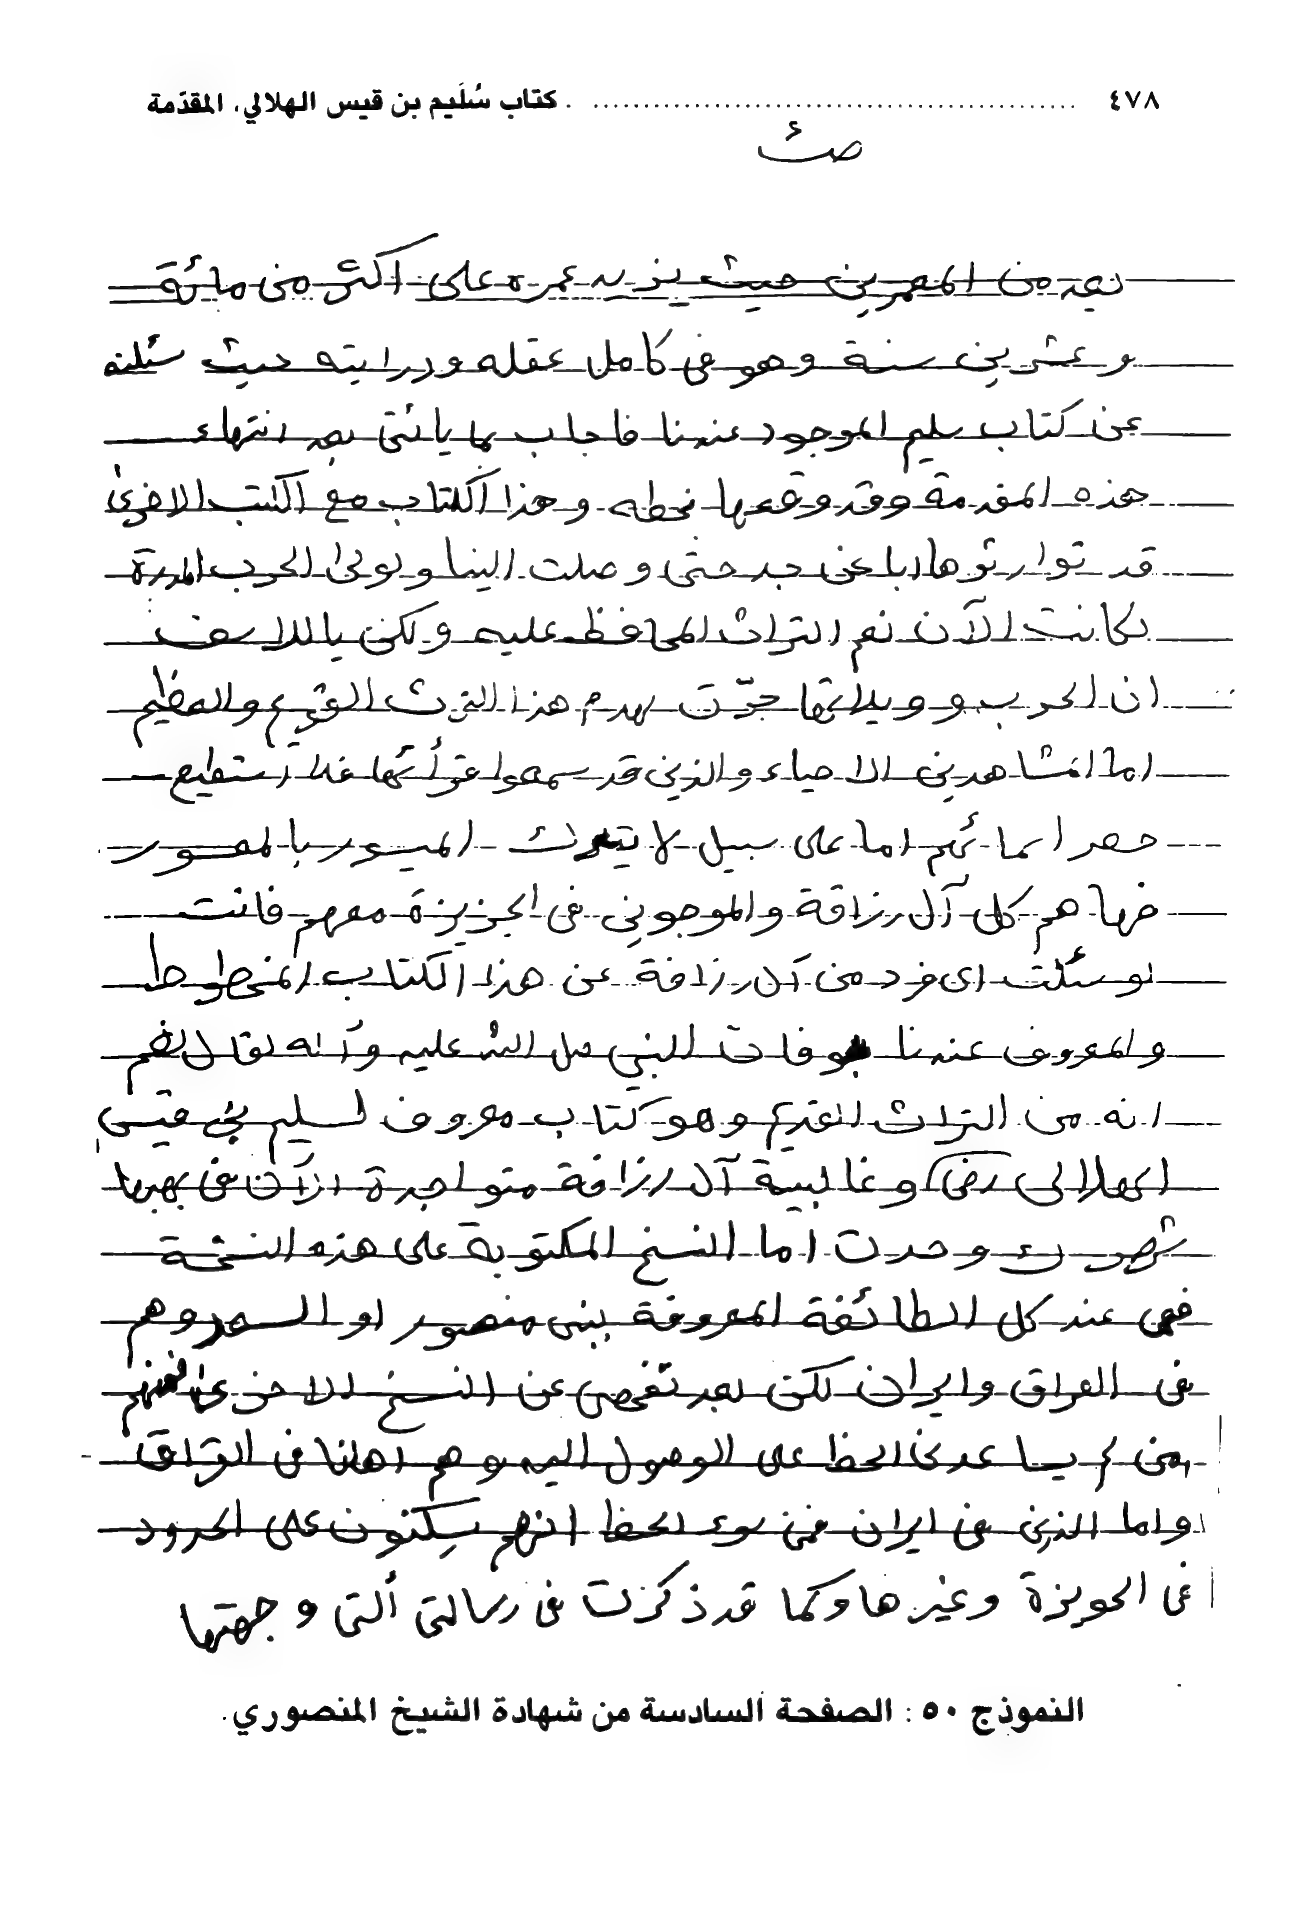 ٤٧٨ ........ كتاب سُلَيم بن قيس الهلالي، المقدّمة
نعد من المعمرين حيث يزيد عمره على اكثر من مائة
و عشرين سنة وهو في كامل عقله ودرايته حيث سئلته
عن كتاب سليم الموجود عندنا فاجاب بما يائتى بعد انتهاء
هذه المقدمة وقد وقعها بخطه وهذا الكتاب مع الكتب الاخرىٰ
قد توارثوها ابا عن جد حتى وصلت الينا ولولىٰ الحرب المدمرة
لكانت الآن نعم التراث المحافظ عليه ولكن ياللاسف
ان الحرب وويلاتها جرّت بهدم هذا التراث القيم والعظيم
اما المشاهدين الاحياء والذين قد سمعوا عن قرأتها فلا استطيع
حصر اسمائهم اما على سبيل لا يترك الميسور بالمعسور
فها هم كل آل رزاقة والموجوين في الجزيزة معهم فانت
لو سئلت اي فرد من آل رزاقة عن هذا الكتاب المخطوط
والمعروف عندنا بوفات النبي صل الله عليه وآله لقال نعم
انه من التراث القديم وهو كتاب معروف لسليم بن قيس
الهلالي (رض) وغالبية آل رزاقة متواجدة الآن في
وحدت اما النسخ المكتوبة على هذه النسخة
فهي عند كل الطائفة المعروفة ببني منصور او وهم
في العراق وايران لكن بعد تفحصي عن النسخ الاخرىٰ فمنهم
من لم يساعدني الحظ على الوصول اليه وهم اهلنا في العراق
واما الذين في ايران فمن سوء الحظ انهم يسكنون على الحدود
في الحويزة وغيرها وكما قد ذكرت في رسالتي ألتي وجهتها
النموذج ٥٠ : الصفحة السادسة من شهادة الشيخ المنصوري.